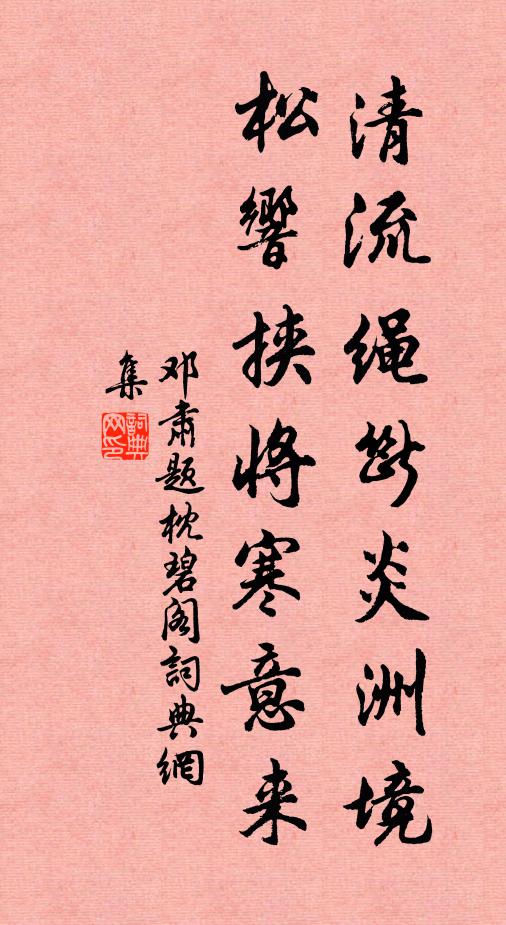 清流绳断炎洲境
松響挟将寒意来
邓肃题枕碧阁詞典網
集
詞典
网印